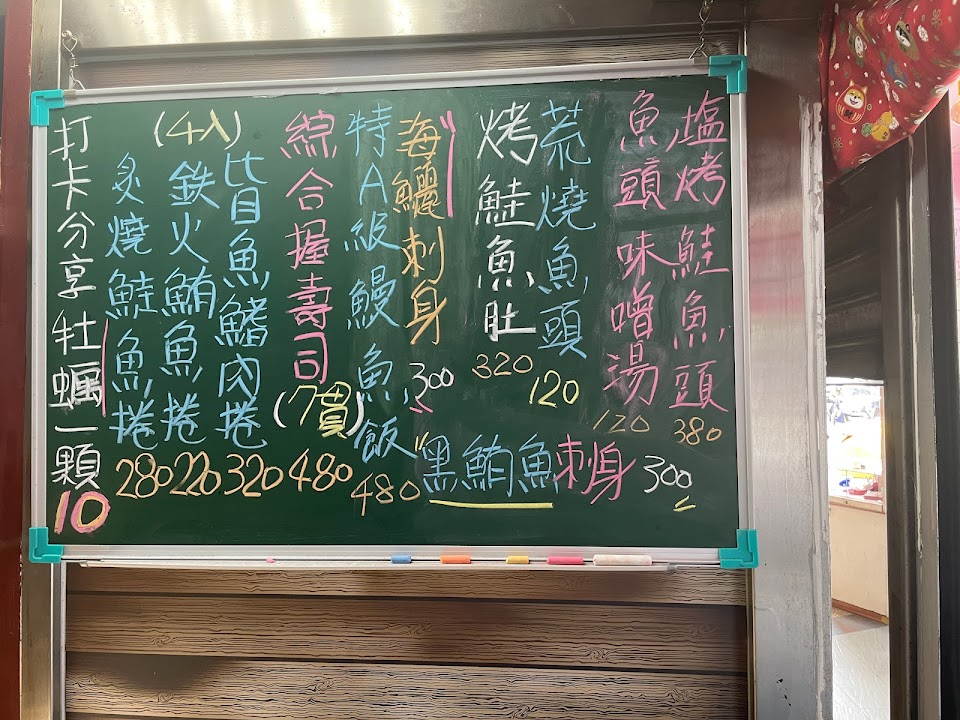 塩烤鮭魚頭 380
魚頭味噌湯 120
荒燒魚頭 120
烤鮭魚肚 320
海鱺刺身 300
特A級鰻魚飯 480
綜合握壽司 (7貫) 480
(4入)
比目魚鰭肉捲 320
鉄火鮪魚捲 220
炙燒鮭魚捲 280
打卡分享牡蠣一顆 10
黑鮪魚刺身 300